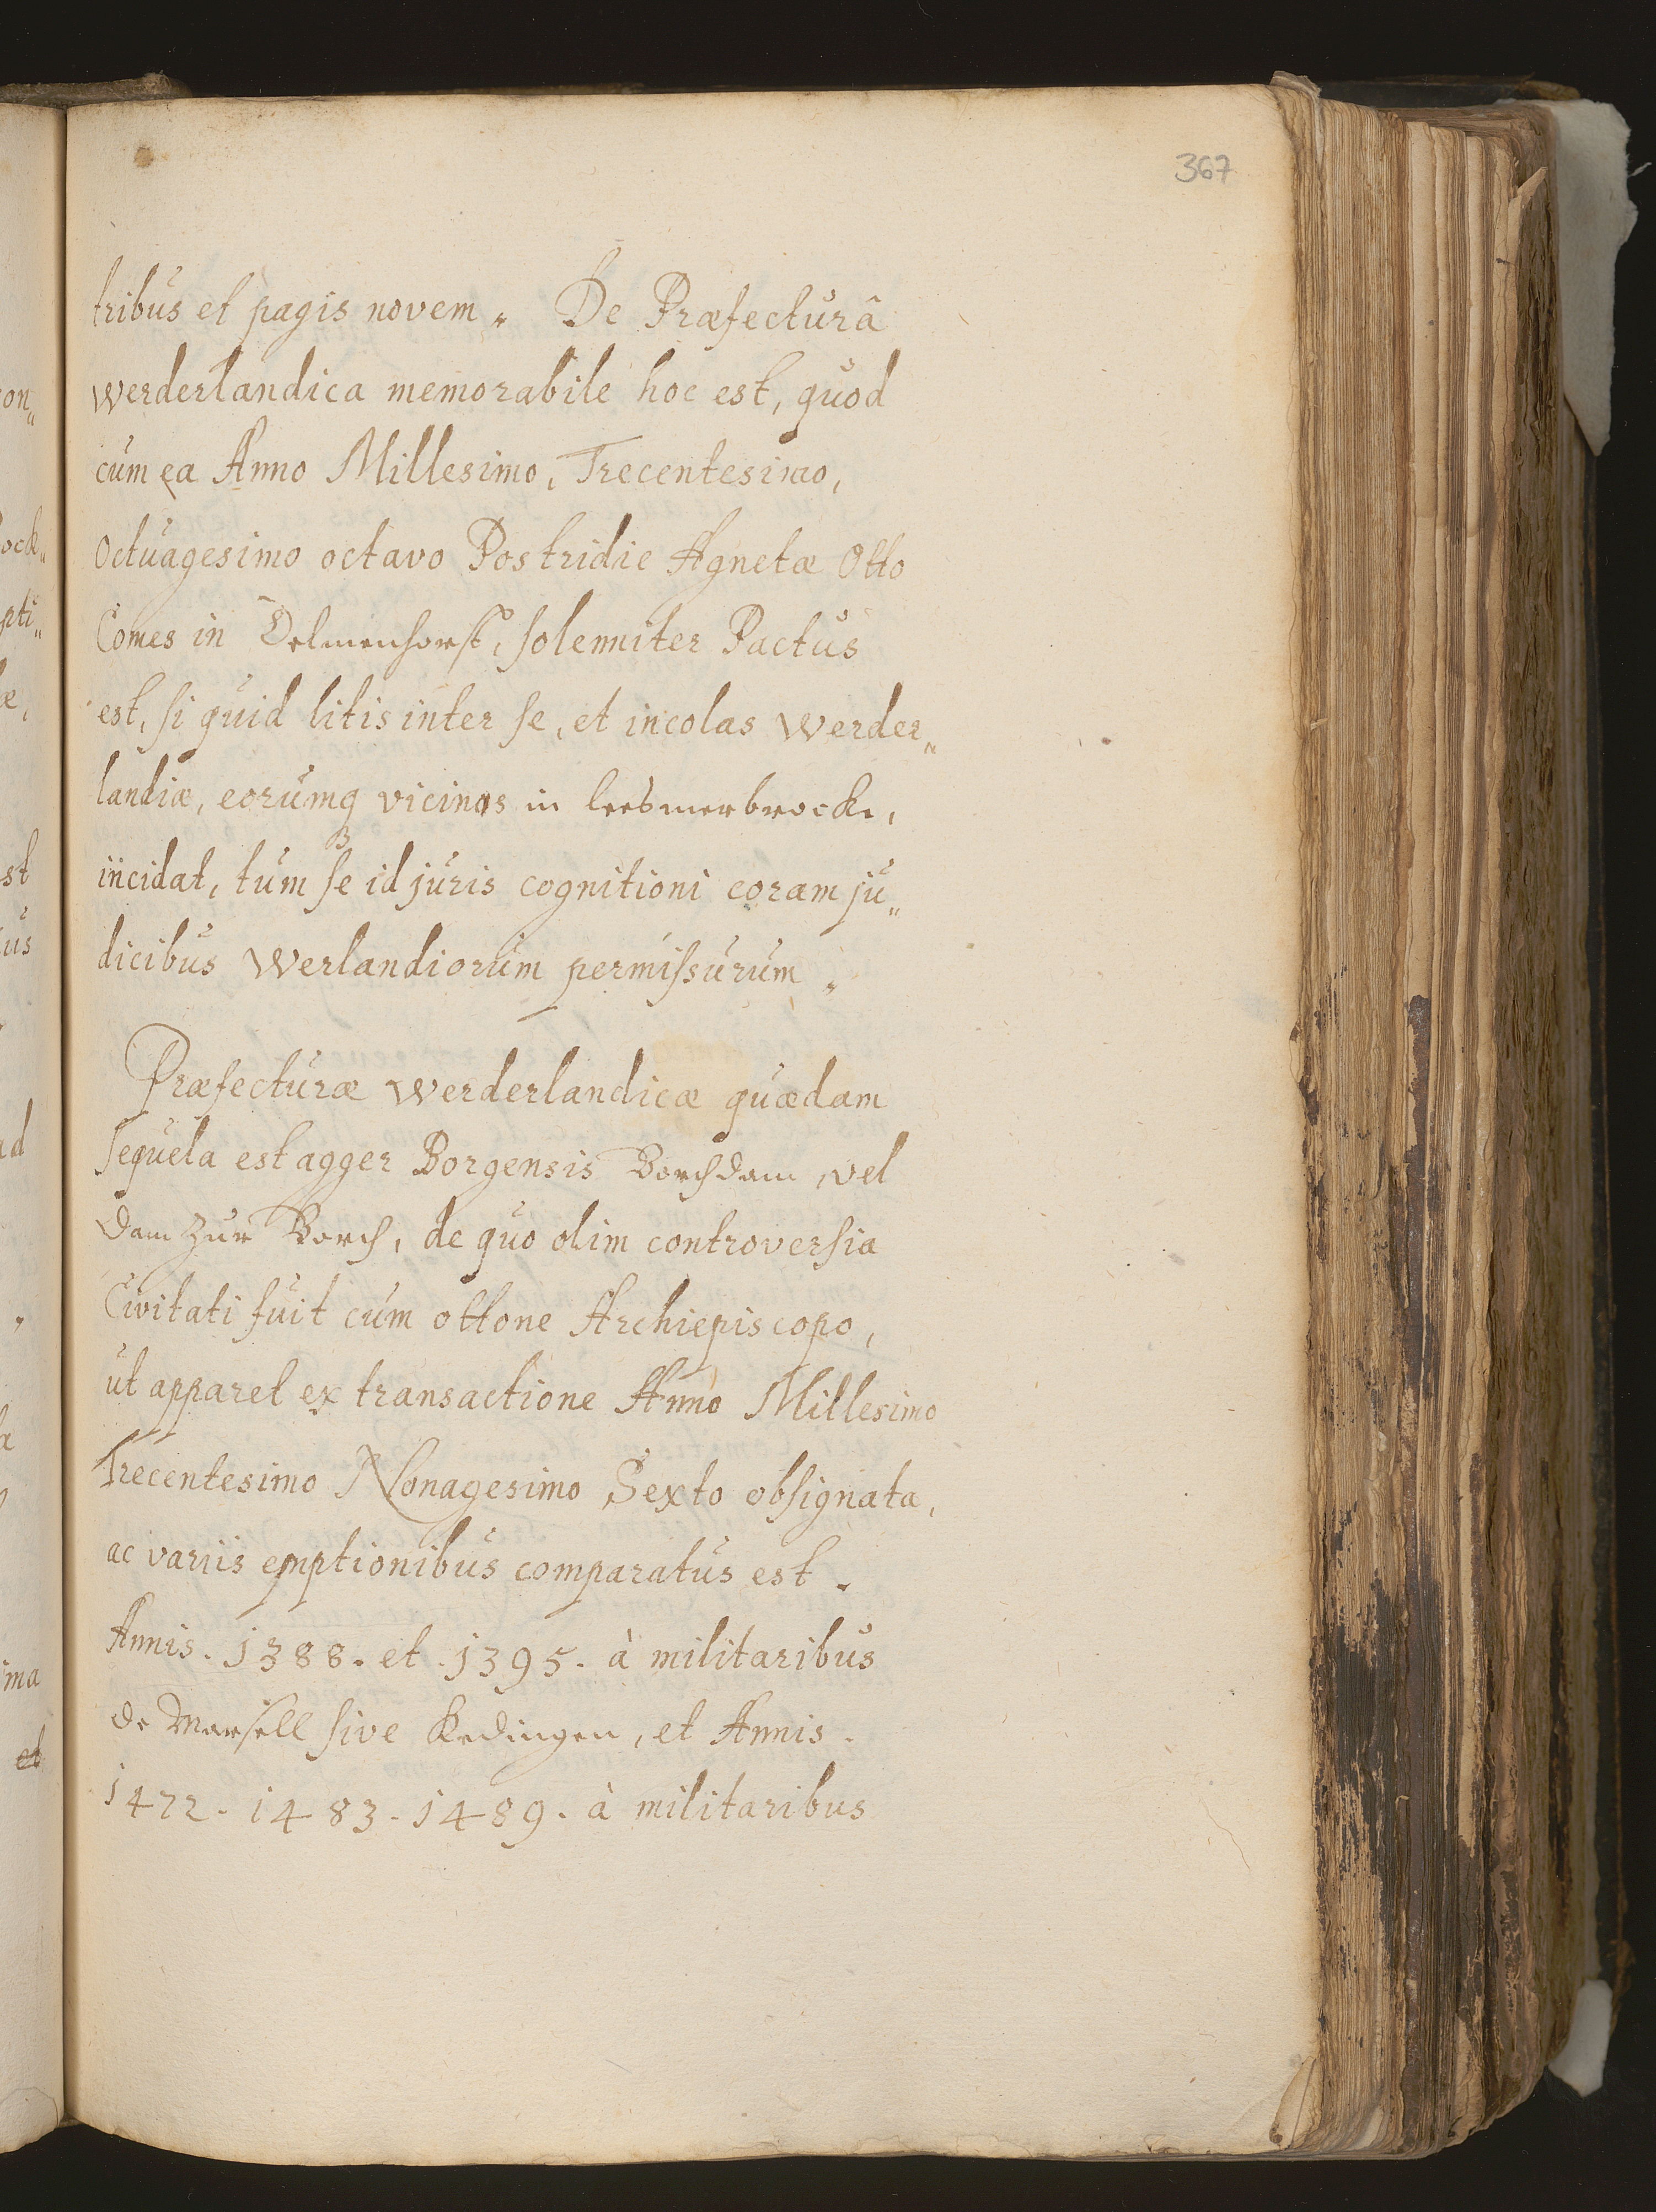 367
tribus et pagis novem. De Præfecturâ
werderlandica memorabile hoc est, quod
cum ea Anno Millesimo, Trecentesimo,
Octuagesimo octavo Postridie Agnetæ Otto
Comes in Delmenhorst, solenniter Pactus
est, si quid litis inter se, et incolas Werder„
landiæ, eorumq vicinos in leesmerbrock,
incidat, tum se id juris cognitioni coram ju„
dicibus Werlandiorum permissurum.
Præfecturæ werderlandicæ quædam
sequela est agger Borgensis Borchdam, vel
Dam zur Borch, de quo olim controversia
Civitati fuit cum ottone Archiepiscopo,
ut apparet ex transactione Anno Millesimo
Trecentesimo Nonagesimo Sexto obsignata,
ac variis emptionibus comparatus est.
Annis. 1388. et. 1395. à militaribus
de Marsell sive Kedingen, et Annis.
1472. 1483. 1489. à militaribus